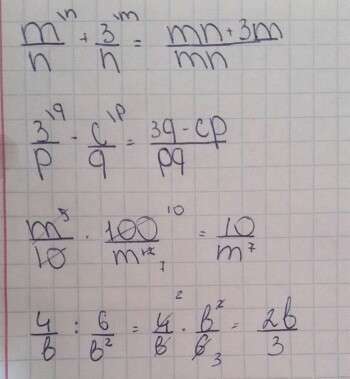 m\n/n + 3\m/n = mn+3m/mn
3\q/p - c\p/q = 3q-cp/pq
m⁵/10 · 100 10/m¹² 7 = 10/m⁷
4/b : 6/b² = 4 2/b · b²/6 3 = 2b/3